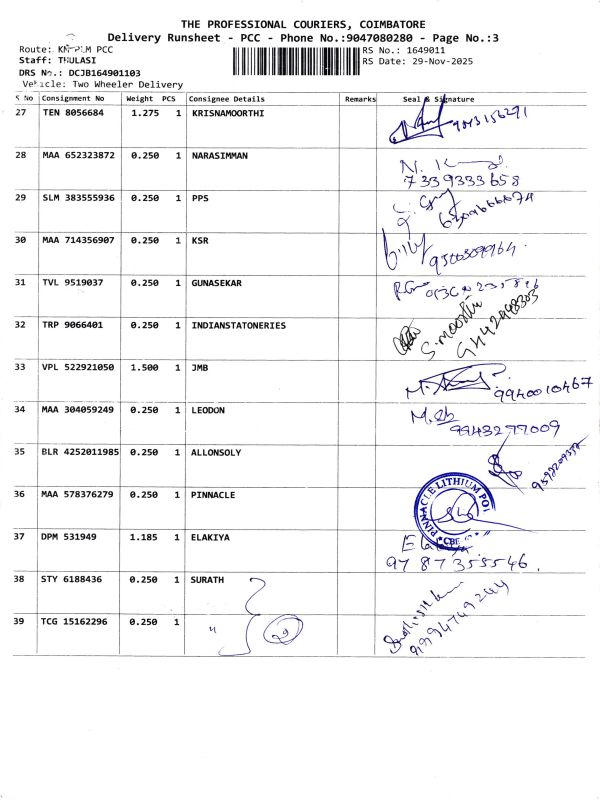 THE PROFESSIONAL COURIERS, COIMBATORE
Delivery Runsheet - PCC - Phone No.:9047080280 - Page No.:3
Route: KN-PLM PCC
RS No.: 1649011
Staff: THULASI
RS Date: 29-Nov-2025
DRS No.: DCJB164901103
Vehicle: Two Wheeler Delivery
S No Consignment No Weight PCS Consignee Details Remarks Seal & Signature
27 TEN 8056684 1.275 1 KRISNAMOORTHI
28 MAA 652323872 0.250 1 NARASIMMAN
7339333658
29 SLM 383555936 0.250 1 PPS
30 MAA 714356907 0.250 1 KSR
9500309964
31 TVL 9519037 0.250 1 GUNASEKAR
32 TRP 9066401 0.250 1 INDIANSTATONERIES
S.moorthi
33 VPL 522921050 1.500 1 JMB
9940010467
34 MAA 304059249 0.250 1 LEODON
9943277009
35 BLR 4252011985 0.250 1 ALLONSOLY
36 MAA 578376279 0.250 1 PINNACLE
PINNACLE LITHIUM
CBE
37 DPM 531949 1.185 1 ELAKIYA
9787355546.
38 STY 6188436 0.250 1 SURATH
39 TCG 15162296 0.250 1 "